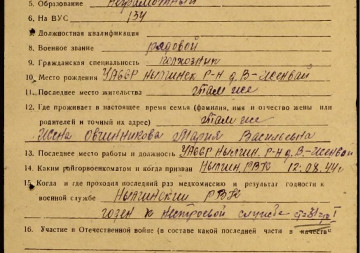 5. Образование
6. На ВУС 134
7. Должностная квалификация
8. Военное звание рядовой
9. Гражданская специальность
10. Место рождения УАССР Нылгинск. Р-н д. В-
11. Последнее место жительства там же
12. Где проживает в настоящее время семья (фамилия, имя и отчество жены или
родителей и точный их адрес) там же
Жена Овчинникова Мария Васильевна
13. Последнее место работы и должность УАССР Нылгин. Р-н д. В-
14. Каким рай(гор)военкоматом и когда призван Нылгин. РВК 12.08.44 г.
15. Когда и где проходил последний раз медкомиссию и результат годности к
военной службе Нылгинский РВК
годен к нестроевой службе
16. Участие в Отечественной войне (в составе какой последней части в качестве